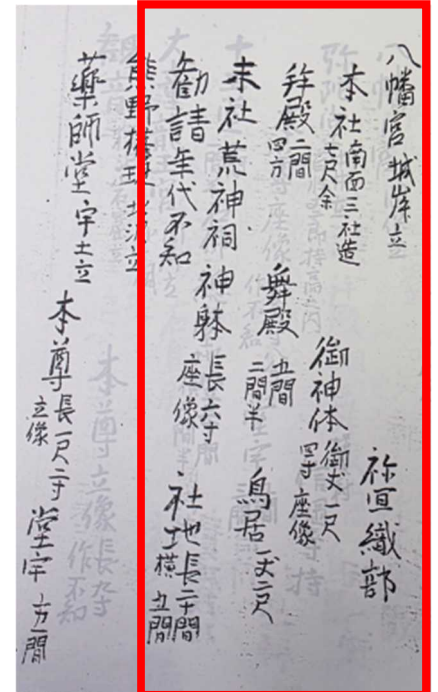 八幡宮 城岸立 祢宜織部
本社 南面三社造 七尺余 御神体 御丈一尺 四寸 座像
拝殿 二間 四方 舞殿 五間 二間半 鳥居 一丈二尺
末社荒神祠 神躰 長六寸 座像 社地 長二十間 横五間
勧請年代不知
熊野権現
薬師堂 本尊 長一尺二寸 立像 堂宇 方一間